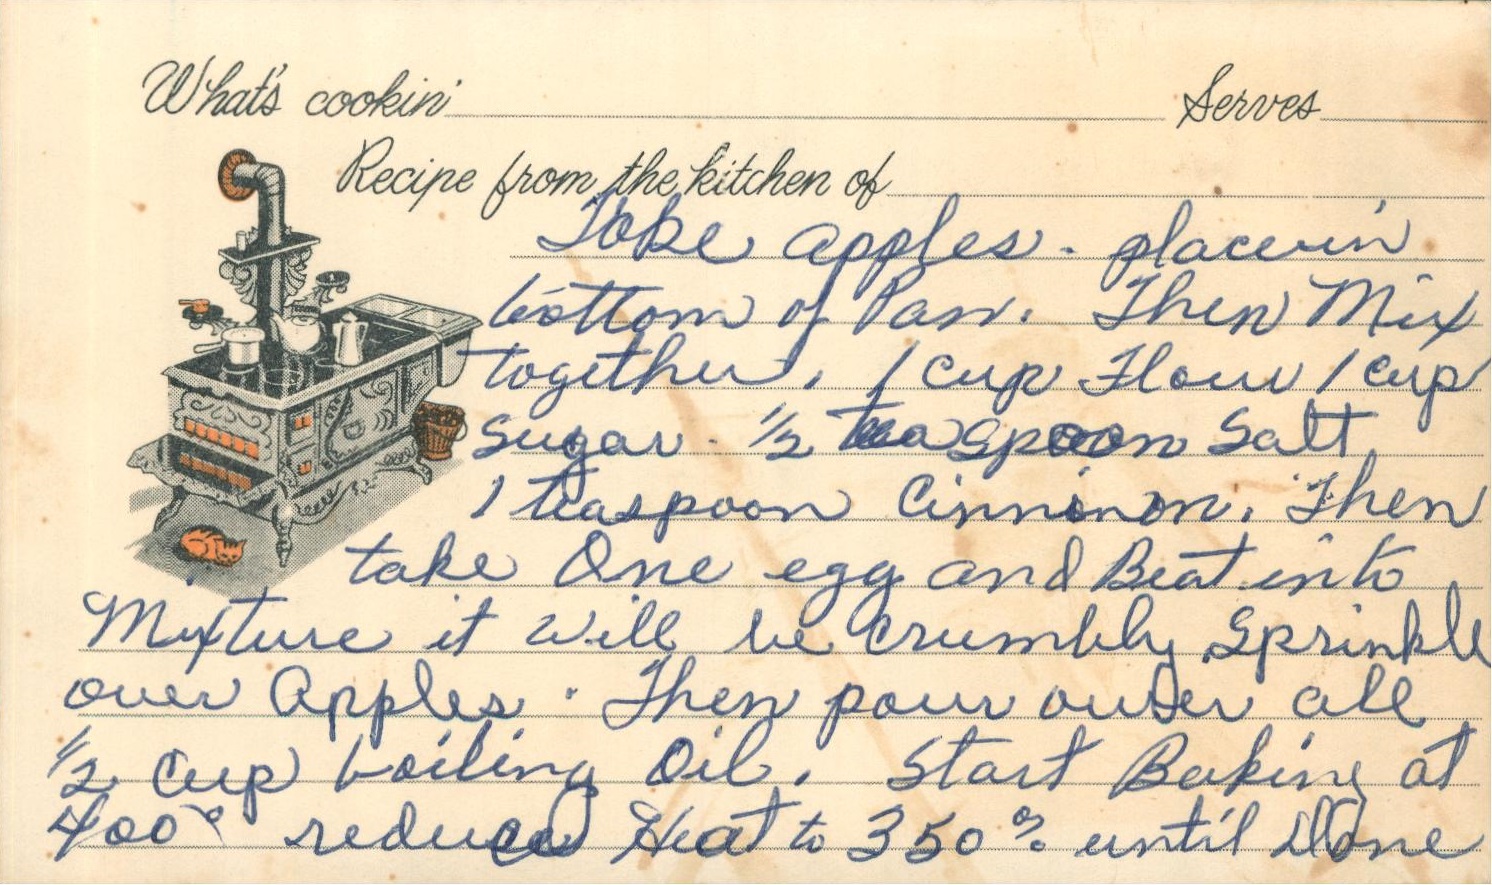 What's cookin' Serves
Recipe from the kitchen of
Take apples. place in
bottom of Pan. Then Mix
together, 1 cup Flour 1 cup
sugar. 1/2 teaspoon Salt
1 teaspoon Cinninon. Then
take One egg and Beat into
Mixture it will be Crumbly Sprinkle
over Apples. Then pour over all
1/2 Cup boiling Oil. Start Baking at
400° reduce Heat to 350° until Done